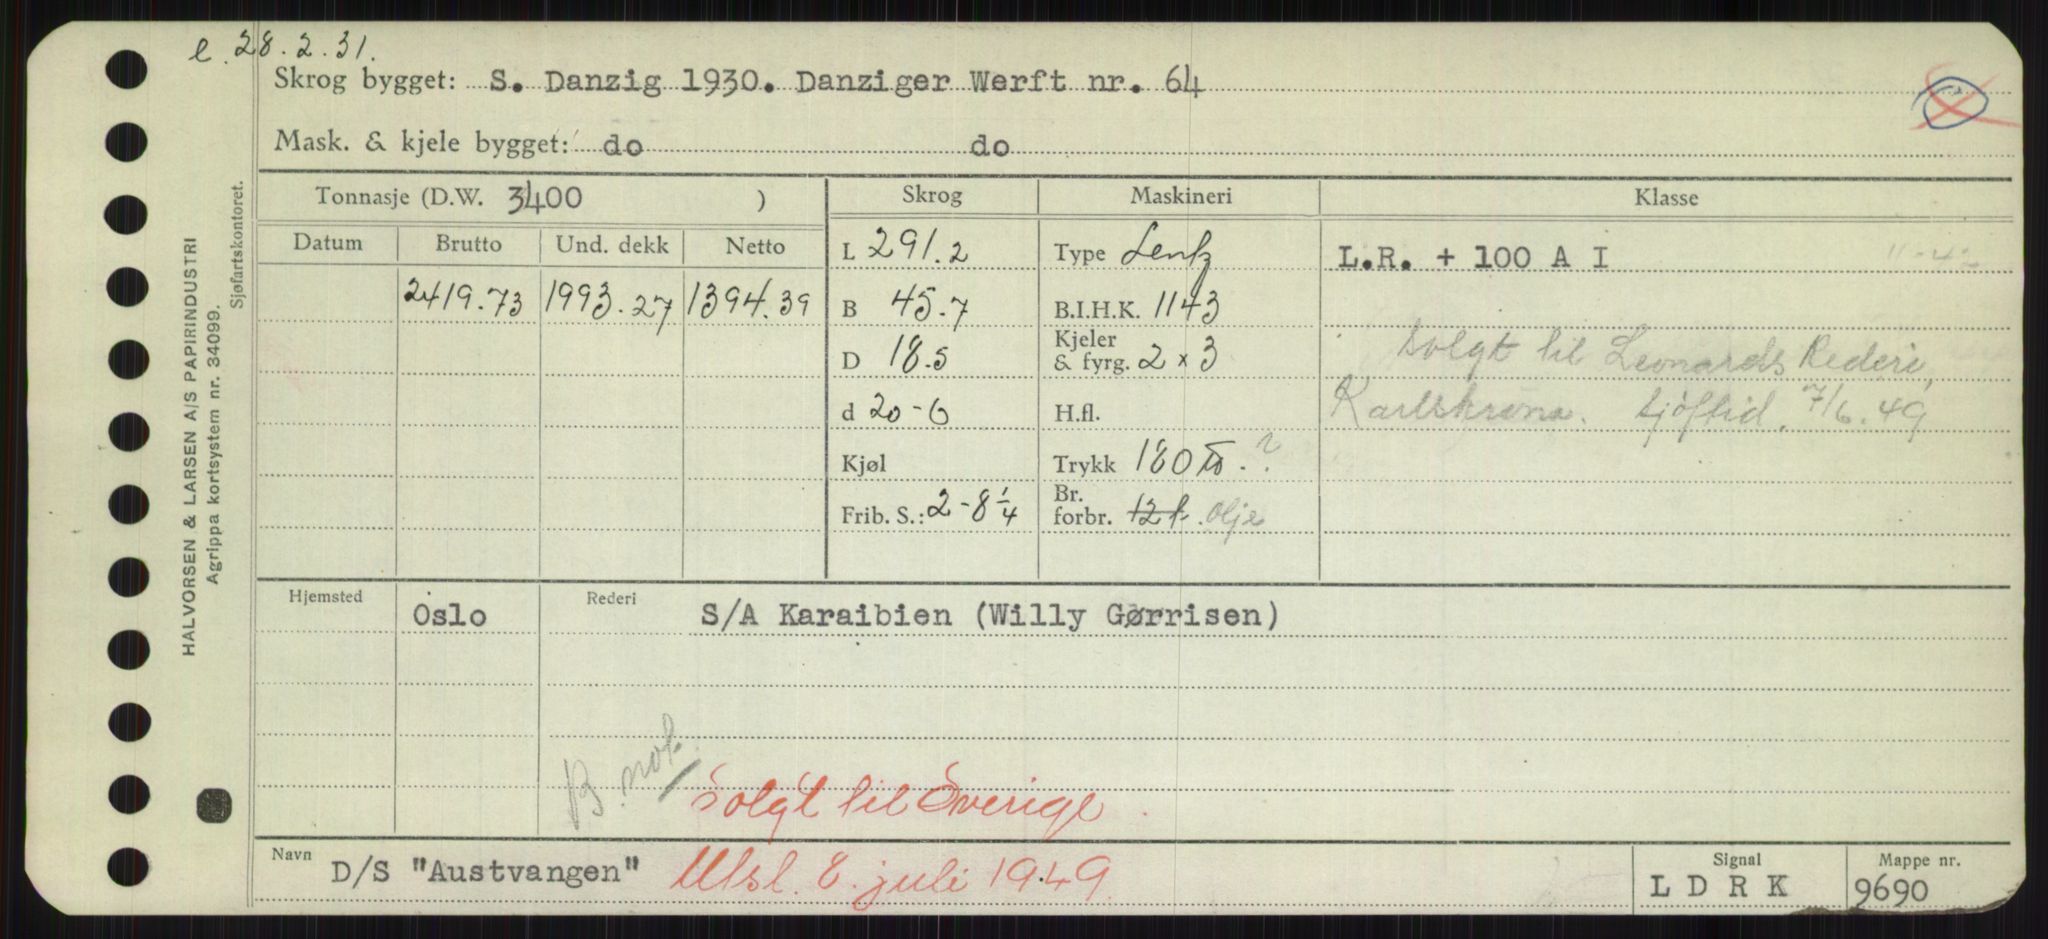 e. 28.2.31.
Skrog bygget: S. Danzig 1930. Danziger Werft nr. 64
Mask. & kjele bygget: do do
Tonnasje (D.W. 3400 ) Skrog Maskineri Klasse
Datum Brutto Und. dekk Netto L 291.2 Type Lentz L.R. + 100 A I 11-42
2419.73 1993.27 1394.39 B 45.7 B.I.H.K. 1143
D 18.5 Kjeler & fyrg. 2 x 3 Solgt til Leonards Rederi,
d 20-6 H.fl. Karlskrona. Sjøftid. 7/6.49
Kjøl Trykk 180 ?
Frib. S.: 2-8 1/4 Br. forbr. 12 t. olje
Hjemsted Oslo Rederi S/A Karaibien (Willy Gørrisen)
B. nok
Solgt til Sverige.
Navn D/S "Austvangen" Utsl. 8. juli 1949. Signal L D R K Mappe nr. 9690
HALVORSEN & LARSEN A/S PAPIRINDUSTRI
Agrippa kortsystem nr. 34099.
Sjøfartskontoret.